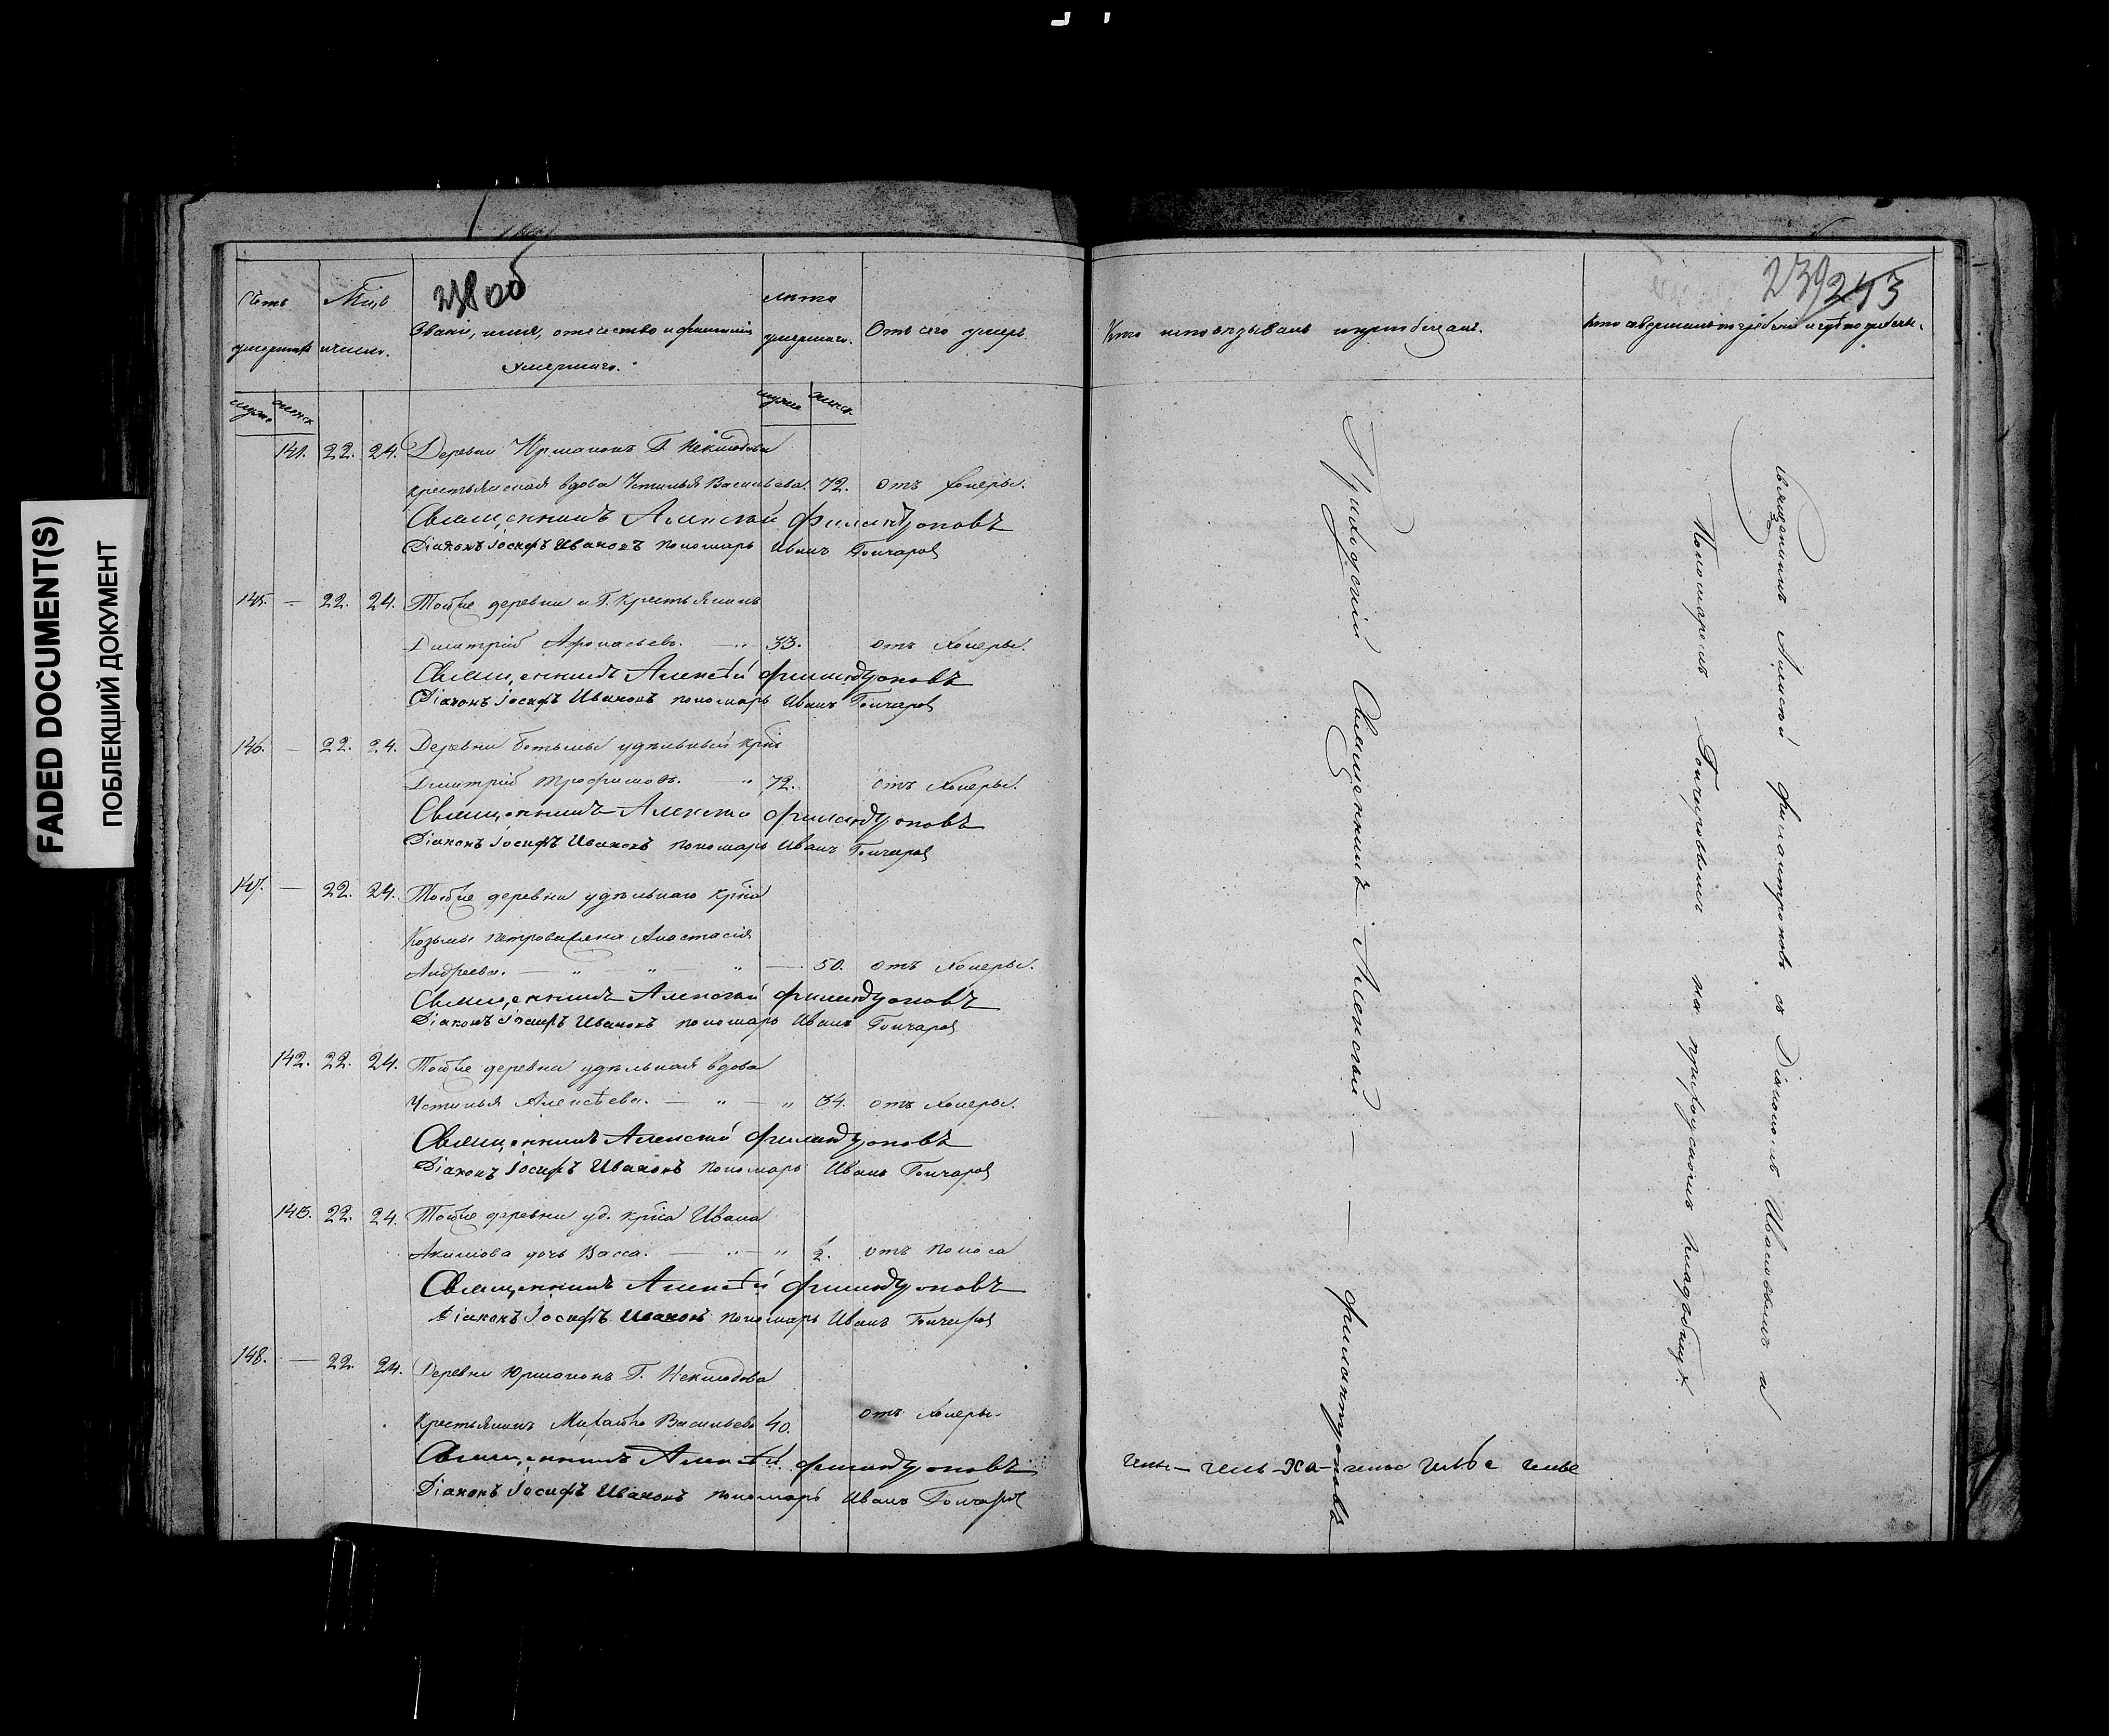 FADED DOCUMENT(S)
ПОБЛЕКШИЙ ДОКУМЕНТ
238 об
Счетъ умершихъ
Мц̃ъ и число.
Званіе, имя, отечество и фамилія умершаго.
лета умершаго.
Отъ чего умеръ
мужс женск
мужс женск
141. 22. 24. Деревни Юрманокъ Г. Неклюдова
крестьянская вдова Устинья Васильева. 72. отъ холеры.
Священникъ Алексѣй Филантроповъ
Діаконъ Іосифъ Ивановъ пономарь Иванъ Гончаровъ
145. — 22. 24. Тойже деревни и Г. Крестьянинъ
Димитрій Афонасьевъ. — „ 33. отъ холеры.
Священникъ Алексѣй Филантроповъ
Діаконъ Іосифъ Ивановъ пономарь Иванъ Гончаровъ
146. — 22. 24. Деревни удѣльный крнъ
Димитрій Трофимовъ. — „ 72. отъ холеры.
Священникъ Алексѣй Филантроповъ
Діаконъ Іосифъ Ивановъ пономарь Иванъ Гончаровъ
147. — 22. 24. Тойже деревни удѣльнаго крна
Козьмы Петрова жена Анастасія
Андреева. — „ „ „ — 50. отъ холеры.
Священникъ Алексѣй Филантроповъ
Діаконъ Іосифъ Ивановъ пономарь Иванъ Гончаровъ
142. 22. 24. Тойже деревни удѣльная вдова
Устинья Алексѣева. — „ — „ 34. отъ холеры.
Священникъ Алексѣй Филантроповъ
Діаконъ Іосифъ Ивановъ пономарь Иванъ Гончаровъ
143. 22. 24. Тойже деревни уд. крна Ивана
Акимова дочь Васса. — „ — „ 2. отъ поноса
Священникъ Алексѣй Филантроповъ
Діаконъ Іосифъ Ивановъ пономарь Иванъ Гончаровъ
148. — 22. 24. Деревни Юрманокъ Г. Неклюдова
Крестьянинъ Михайло Васильевъ 40. отъ холеры.
Священникъ Алексѣй Филантроповъ
Діаконъ Іосифъ Ивановъ пономарь Иванъ Гончаровъ
239 243
Кто исповѣдывалъ и пріобщалъ.
Кто совершалъ погребеніе и гдѣ погребены.
Приходскій Священникъ — Алексѣй — — Филантроповъ
Священникъ Алексѣй Филантроповъ съ Діакономъ Ивановымъ и
Пономаремъ Гончаровымъ на приходскомъ кладбищѣ.